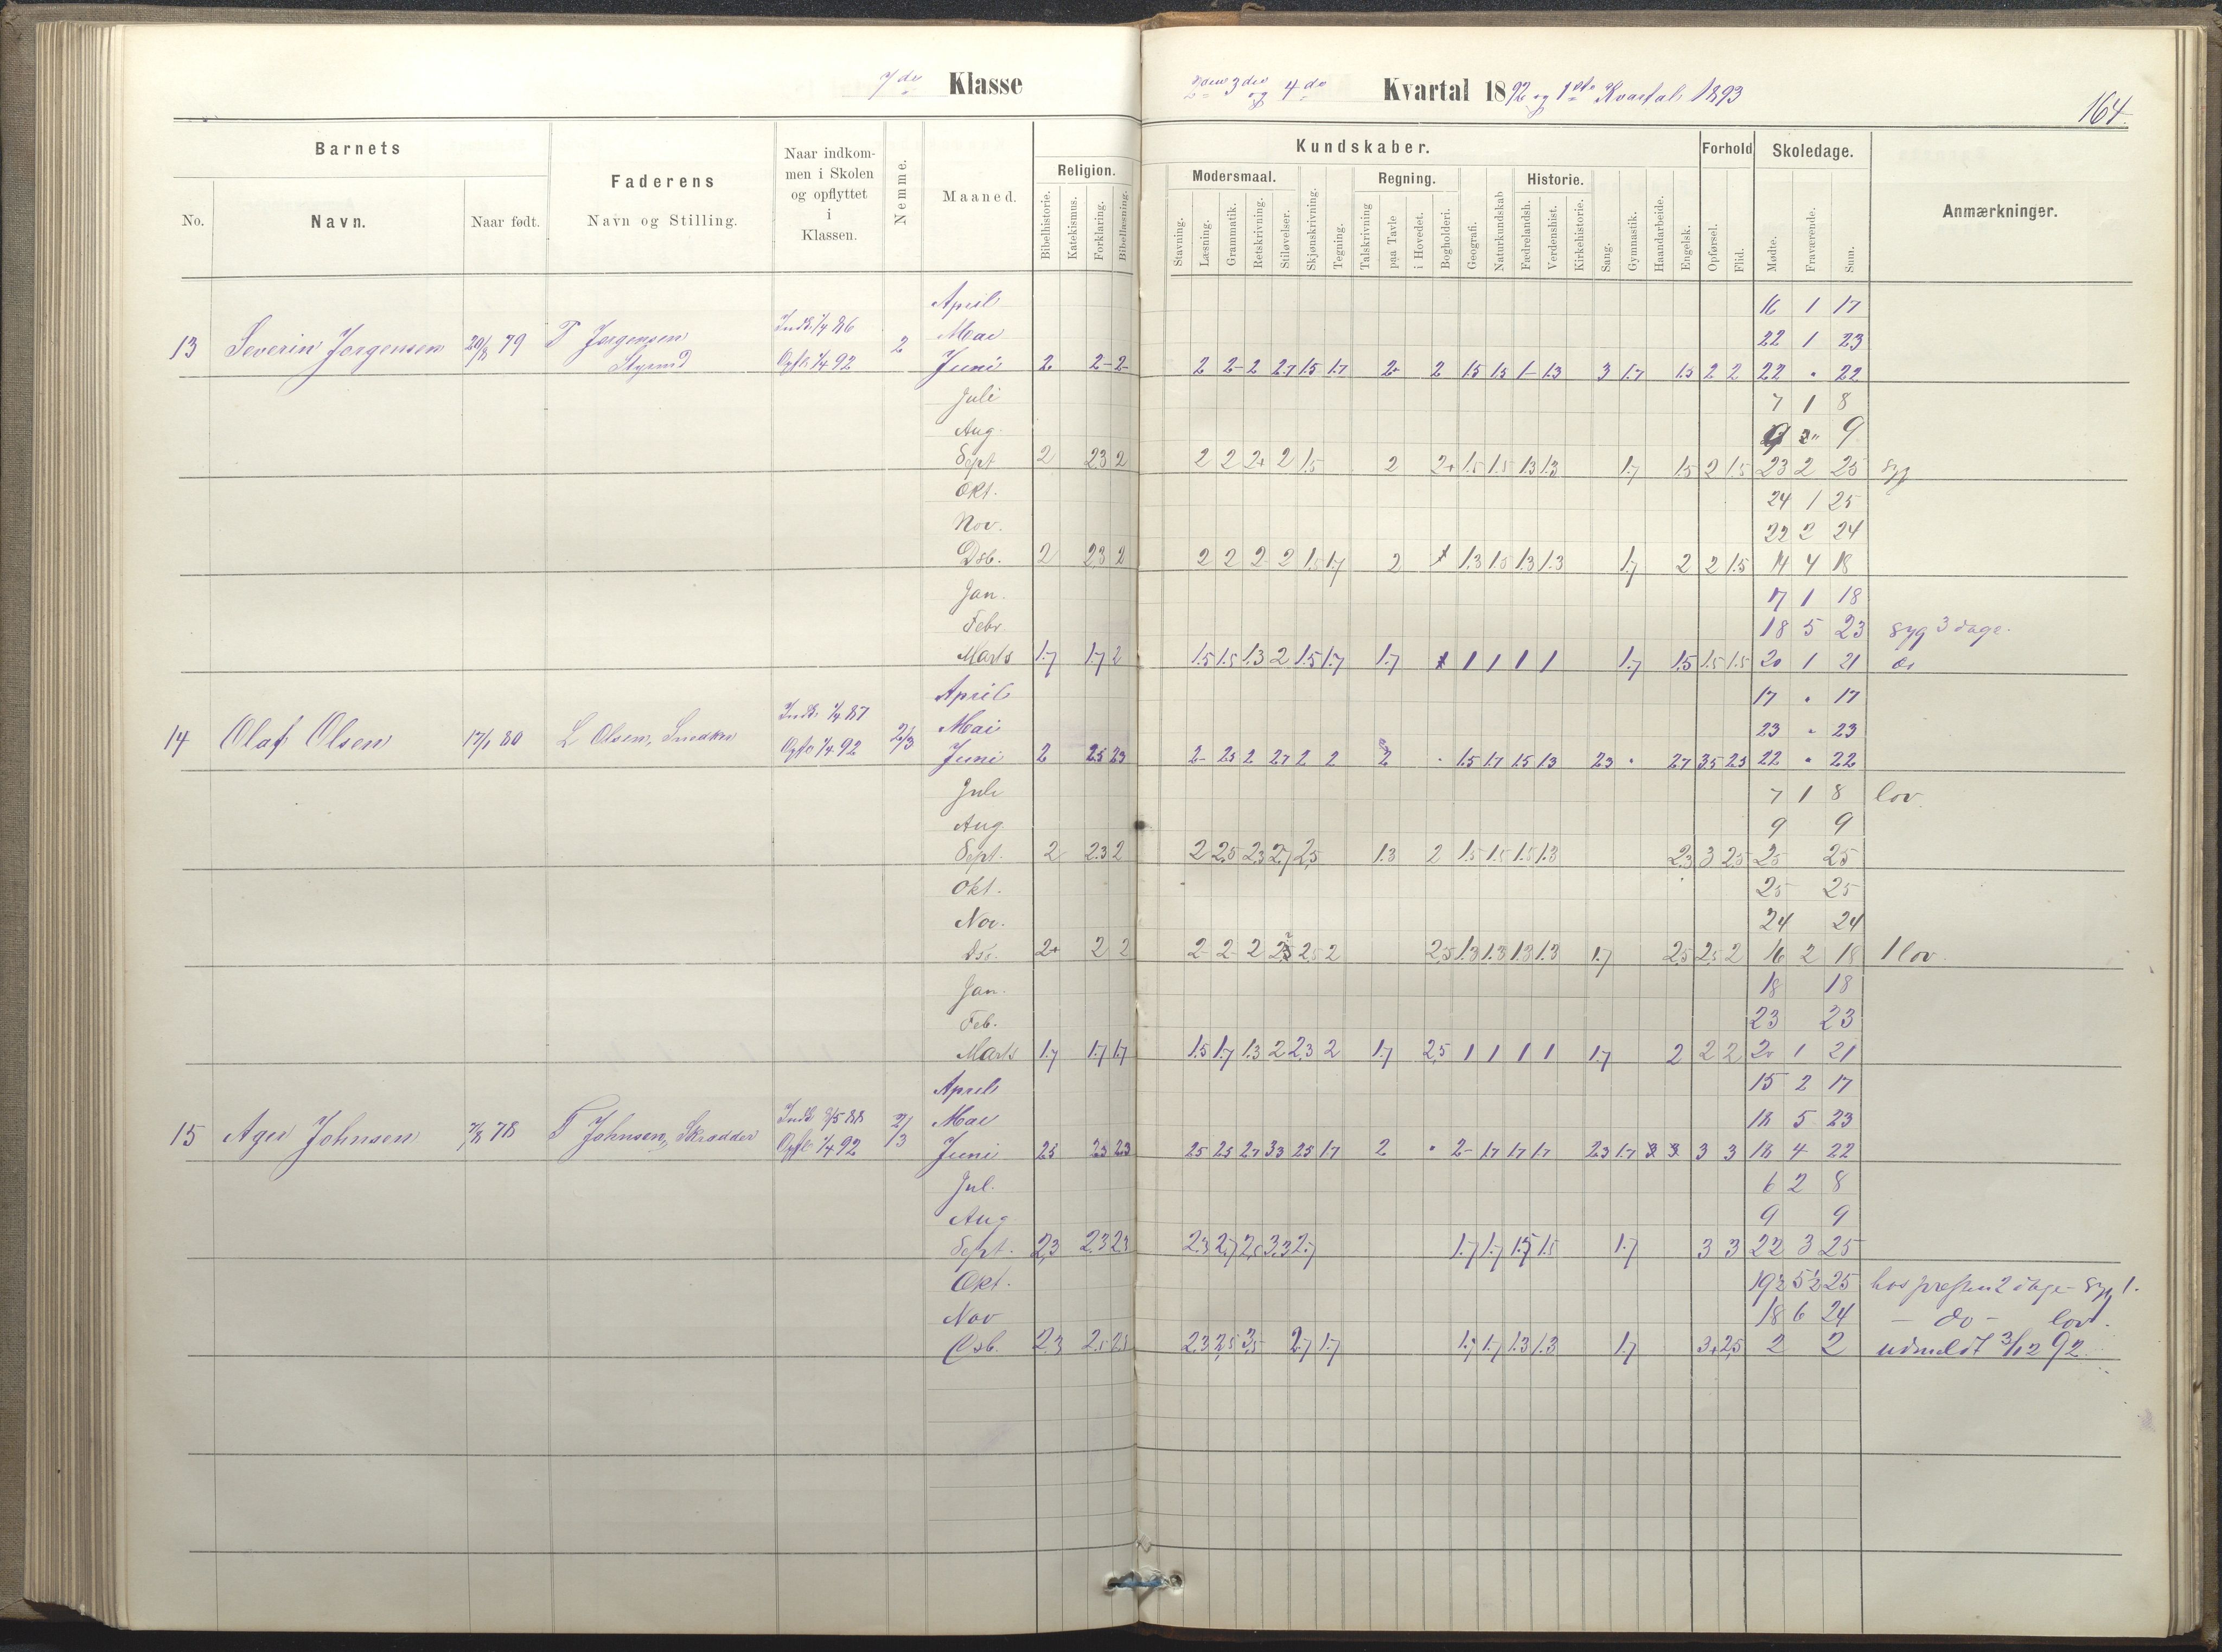 7de Klasse
2den 3die og 4de Kvartal 1892 og 1ste Kvartal 1893
164.
Barnets
No.
Navn.
Naar født.
Faderens
Navn og Stilling.
Naar indkom-
men i Skolen
og opflyttet
i
Klassen.
Nemme.
Maaned.
Kundskaber.
Religion.
Bibelhistorie.
Katekismus.
Forklaring.
Bibellæsning.
Modersmaal.
Stavning.
Læsning.
Grammatik.
Retskrivning.
Stiløvelser.
Skjønskrivning.
Tegning.
Regning.
Talskrivning
paa Tavle
i Hovedet.
Bogholderi.
Geografi.
Naturkundskab
Historie.
Fædrelandsh.
Verdenshist.
Kirkehistorie.
Sang.
Gymnastik.
Haandarbeide.
Engelsk.
Forhold
Opførsel.
Flid.
Skoledage.
Mødte.
Fraværende.
Sum.
Anmærkninger.
April 16 1 17
13 Severin Jørgensen 20/8 79 T Jørgensen Indk. 1/4 86 2 Mai 22 1 23
Styrmd Opfl. 1/4 92 Juni 2 2- 2- 2 2- 2 2.7 1.5 1.7 2- 2 1.5 1.5 1- 1.3 3 1.7 1.5 2 2 22 " 22
Juli 7 1 8
Aug. 9 " 9
Sept 2 2.3 2 2 2 2+ 2 1.5 2 2+ 1.5 1.5 1.3 1.3 1.7 1.5 2 1.5 23 2 25 syg
Okt. 24 1 25
Nov. 22 2 24
Dsb. 2 2.3 2 2 2 2 2 1.5 1.7 2 1.3 1.5 1.3 1.3 1.7 2 2 1.5 14 4 18
Jan. 17 1 18
Febr 18 5 23 syg 3 dage.
Marts 1.7 1.7 2 1.5 1.5 1.3 2 1.5 1.7 1.7 1 1 1 1 1.7 1.5 1.5 1.5 20 1 21
April 17 " 17
14 Olaf Olsen 17/1 80 L Olsen, Snedker Indk. 1/4 87 2/3 Mai 23 " 23
Opfl. 1/4 92 Juni 2 2.5 2.3 2- 2.5 2 2.7 2 2 2 " 1.5 1.7 1.5 1.3 2.3 " 2.7 3.5 2.5 22 " 22
Juli 7 1 8 lov.
Aug. 9 9
Sept. 2 2.3 2 2 2.5 2.3 2.7 2.5 1.3 2 1.5 1.5 1.5 1.3 2.3 3 2.5 25 25
Okt. 25 25
Nov. 24 24
Dsb. 2+ 2 2 2- 2- 2 2.5 2 2.5 1.3 1.3 1.3 1.3 1.7 2.5 2.5 2 16 2 18 1 lov.
Jan. 18 18
Feb. 23 23
Marts 1.7 1.7 1.7 1.5 1.7 1.3 2 2.3 2 1.7 2.5 1 1 1 1 1.7 2 2 2 20 1 21
April 15 2 17
15 Johnsen 78 T Johnsen, Skrædder Indk 2/5 88 2/3 Mai 18 5 23
Opfl. 1/4 92 Juni 2.5 2.5 2.3 2.5 2.5 2.7 3.3 2.5 1.7 2 " 2- 1.7 1.7 1.7 2.3 1.7 3 3 18 4 22
Jul. 6 2 8
Aug 9 9
Sept. 2.3 2.3 2.3 2.3 2.7 2.5 3.3 2.7 1.7 1.7 1.5 1.5 1.7 3 3 22 3 25
Okt. 19½ 5½ 25 hos presten 2 dage - syg 1.
Nov 18 6 24 - do - lov 1.
Dsb. 2.3 2.5 2.5 2.3 2.5 3.5 2.7 1.7 1.7 1.7 1.3 1.3 1.7 3+ 2.5 2 2 udmeldt 3/12 92